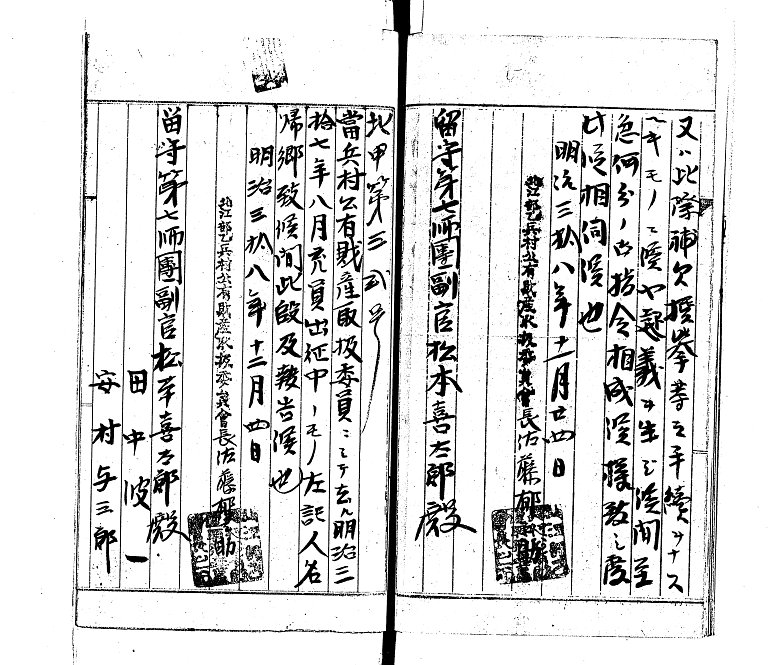 又ハ此際補欠撰挙等之手続ヲナス
ヘキモノニ候ヤ疑義ヲ生シ候間至
急何分ノ御指令相成候様致シ度
此段相伺候也
明治三拾八年十一月廿四日
空知郡乙兵村公有財産取扱委員會長佐藤郁助
留守第七師團副官松本喜太郎殿
北甲第三弐号
當兵村公有財産取扱委員ニシテ去ル明治三
拾七年八月充員出征中ノモノ左記人名
帰郷致候間此段及報告候也
明治三拾八年十二月四日
兵村公有財産取扱委員會長佐藤郁助
留守第七師團副官松本喜太郎殿
田中波一
安村与三郎